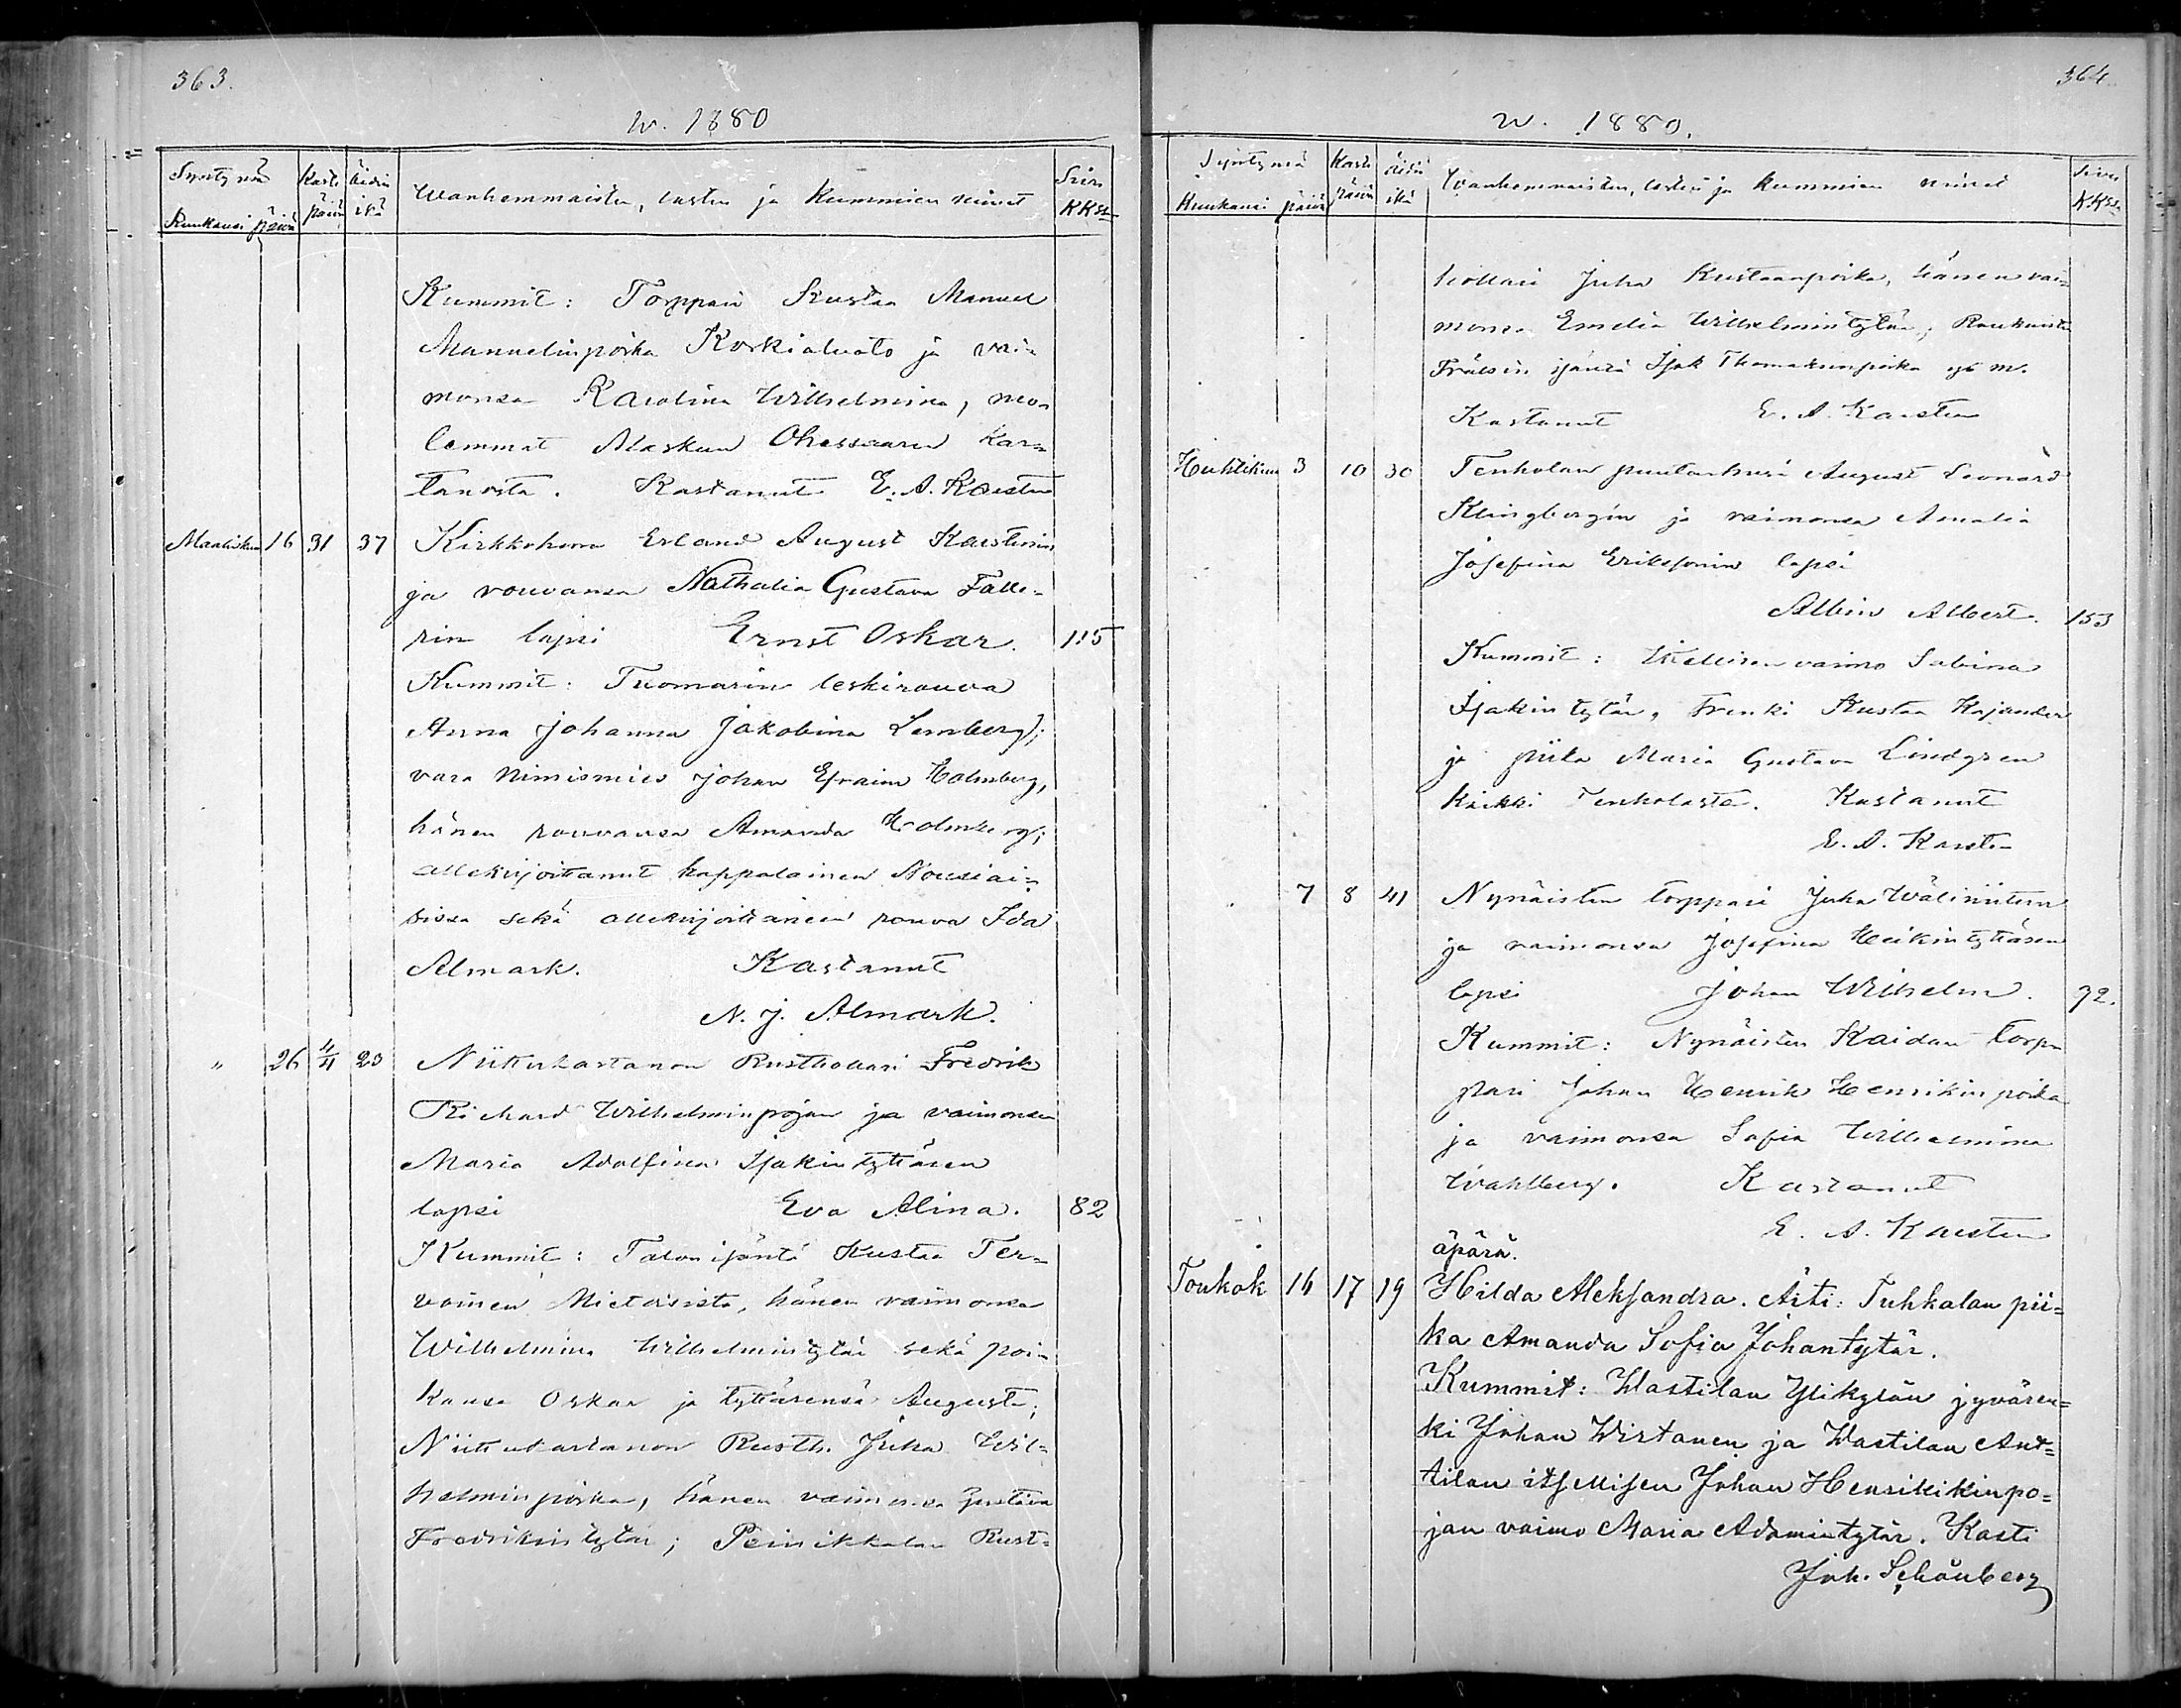 363.
w. 1880
Syntymä Kuukausi päivä
Kaste päivä
Äidin ikä
Wanhemmaisten, lasten ja Kummien nimet
Sivu K.K.ssa
Kummit: Torppari Kustaa Manuel
Manuelinpoika Korkialuoto ja vai=
monsa Karolina Wilhelmina, mo=
lemmat Alaskun Ohessaaren kar=
tanosta. Kastanut E. A. Karsten
Maaliskuu 16 31 37 Kirkkoherra Erland August Karstenin
ja rouvansa Nathalia Gustava Falle=
rin lapsi Ernst Oskar. 115
Kummit: Tuomarin leskirouva
Anna Johanna Jakobina Lemberg;
vara Nimismies Johan Efraim Holmberg,
hänen rouvansa Amanda Holmberg;
allekirjoittanut kappalainen Nousiai=
sissa sekä allekirjoittaneen rouva Ida
Almark. Kastanut
N. J. Almark.
" 26 4/4 23 Niittukartanon Rusthollari Fredrik
Richard Wilhelminpojan ja vaimonsa
Maria Adolfina Isakintyttären
lapsi Eva Alina. 82
Kummit: Talon isäntä Kustaa Ter=
vainen Mietoisista, hänen vaimonsa
Wilhelmina Wilhelmintytär sekä poi=
kansa Oskar ja tyttärensä Augusta;
Niittukartanon Rusth. Juha Wil=
helminpoika, hänen vaimonsa Gustava
Fredrikintytär; Peinikkalan Rust=
364.
w. 1880.
Syntymä Kuukausi päivä
Kaste päivä
Äidin ikä
Wanhemmaisten, lasten ja Kummien nimet
Sivu K.K.ssa
hollari Juha Kustaanpoika, hänen vai=
monsa Emelia Wilhelmintytär; Raukaisten
Frälsin isäntä Isak Thomaksenpoika ys m.
Kastanut E. A. Karsten
Huhtikuu 3 10 30 Tenholan puutarhuri August Leonard
Klingbergin ja vaimonsa Amalia
Josefina Erikssonin lapsi
Albin Albert. 153
Kummit: Itsellisen vaimo Sabina
Isakintytär, Trenki Kustaa Kajander
ja piika Maria Gustava Lindgren
kaikki Tenholasta. Kastanut
E. A. Karsten
7 8 41 Nynäisten torppari Juha Wäliniitun
ja vaimonsa Josefina Heikintyttären
lapsi Johan Wilhelm. 92.
Kummit: Nynäisten Kaidan torp=
pari Johan Henrik Henrikinpoika
ja vaimonsa Sofia Wilhelmina
Wahlberg. Kastanut
E. A. Karsten
äpärä.
Toukok 16 17 19 Hilda Aleksandra. Äiti: Tuhkalan pii=
ka Amanda Sofia Johantytär.
Kummit: Wastilan Ylikylän jyvären=
ki Johan Wirtanen ja Wastilan Ant=
tilan itsellisen Johan Hensikikinpo=
jan vaimo Maria Adamintytär. Kasti
Joh. Schönberg